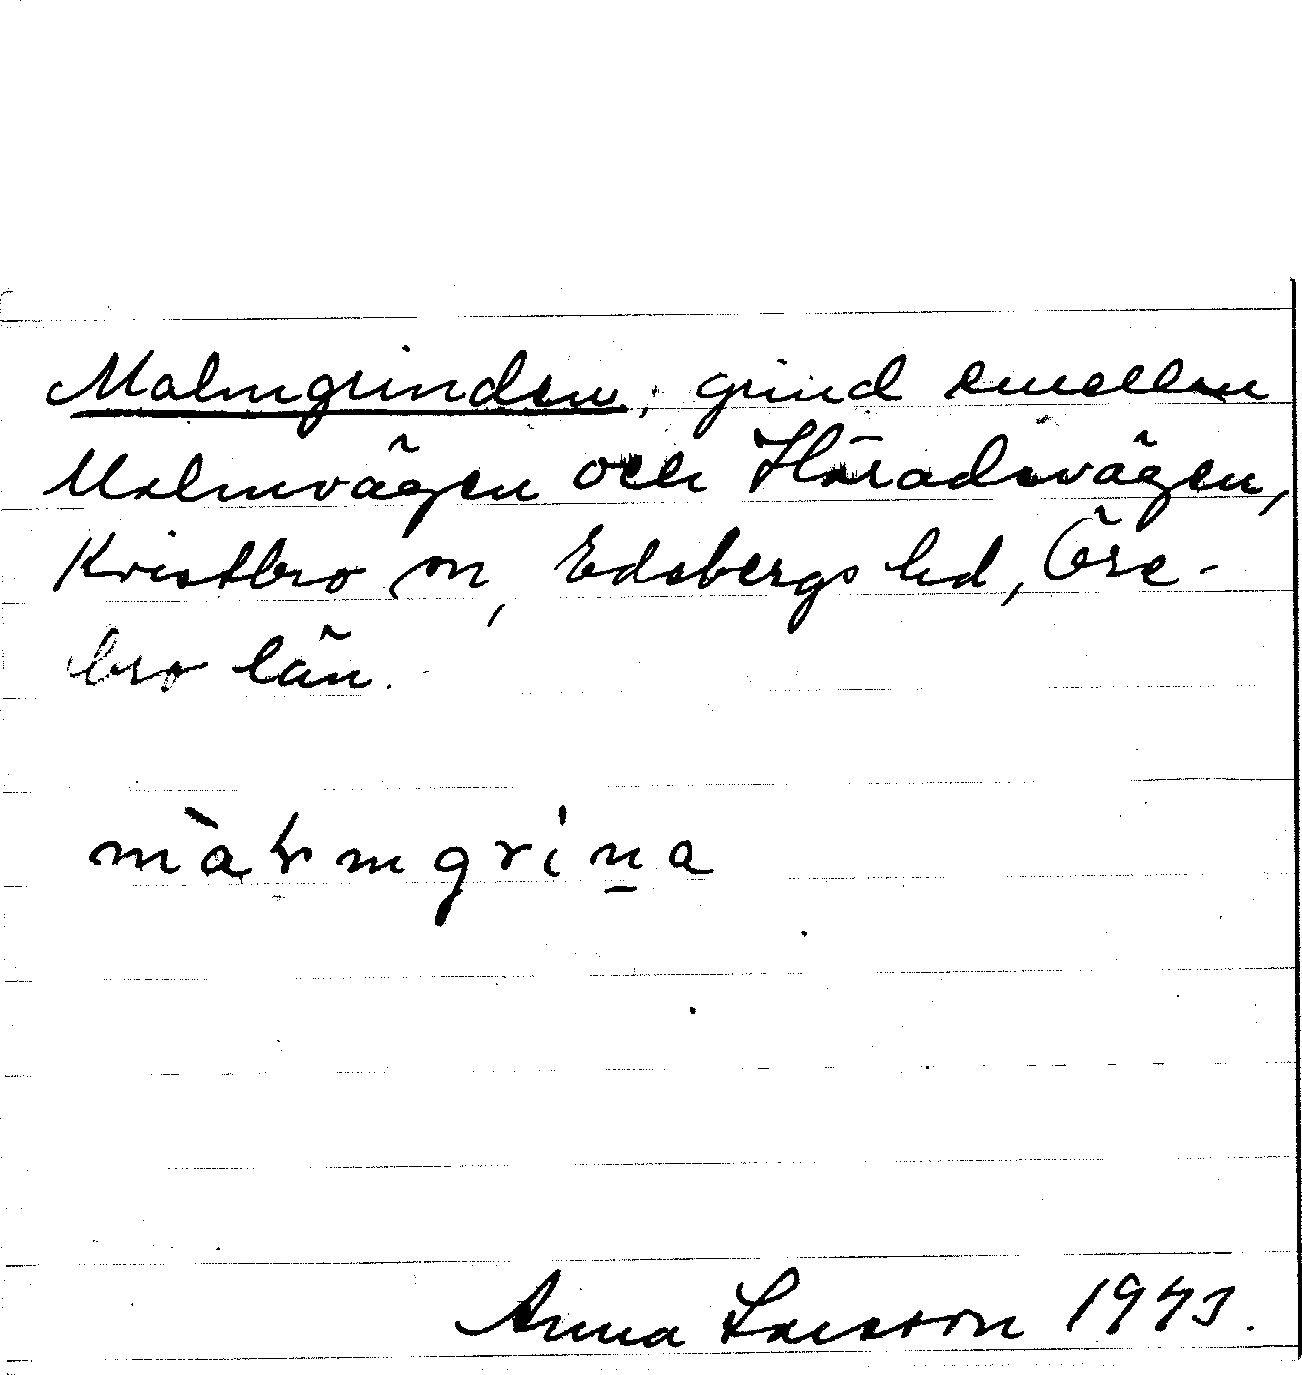 Malmgrinden; grind emellan
Malmvägen och Häradsvägen,
Kvistbro sn, Edsbergs hd, Öre-
bro län.
màłmgriṉa
Anna Larsson 1973.